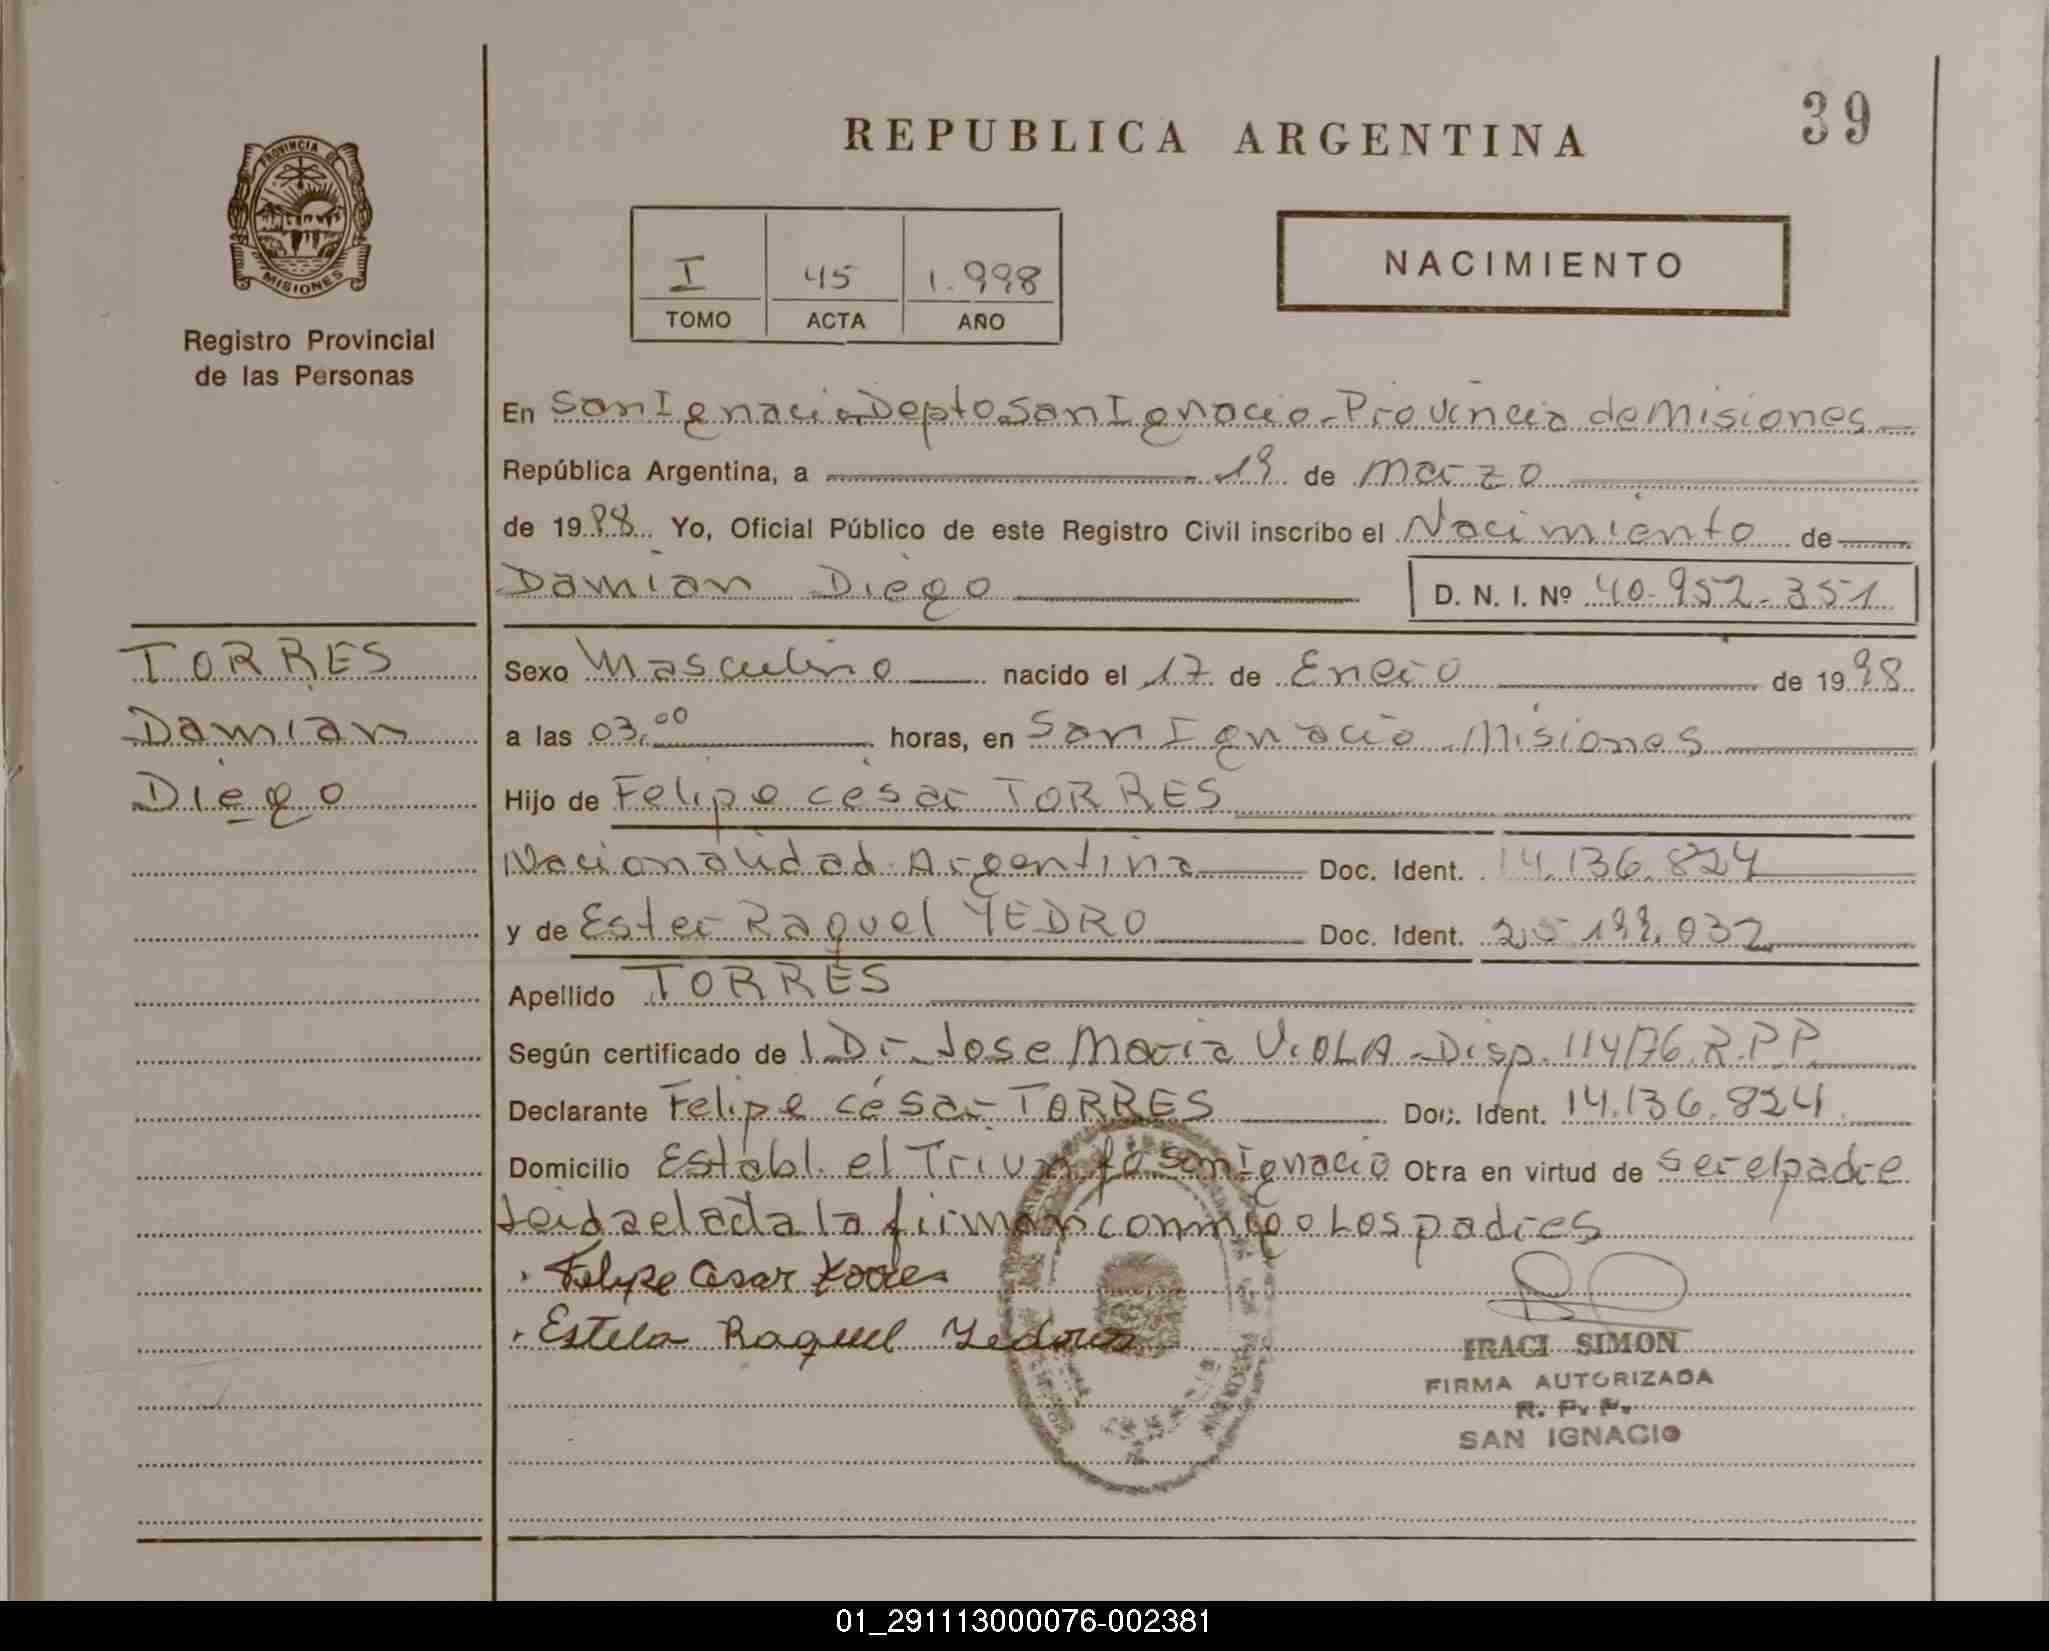 39
REPUBLICA ARGENTINA
PROVINCIA DE
MISIONES
Registro Provincial
de las Personas
I 45 1.998
TOMO ACTA AÑO
NACIMIENTO
En San Ignacio Depto San Ignacio - Provincia de Misiones
República Argentina, a 19 de Marzo
de 1998 Yo, Oficial Público de este Registro Civil inscribo el Nacimiento de
Damian Diego D. N. I. Nº 40.952.351
TORRES
Damian
Diego
Sexo Masculino nacido el 17 de Enero de 1998
a las 03,00 horas, en San Ignacio Misiones
Hijo de Felipe César TORRES
Nacionalidad Argentina Doc. Ident. 14.136.824
y de Ester Raquel YEDRO Doc. Ident. 25.199.032
Apellido TORRES
Según certificado de Dr. Jose Maria VIOLA - Disp. 114/76.R.P.P.
Declarante Felipe César TORRES Doc. Ident. 14.136.824
Domicilio Establ. el Triunfo San Ignacio Obra en virtud de ser el padre
Leida el acta la firman conmigo Los padres
Felipe Cesar Torres
Estela Raquel
IRACI SIMON
FIRMA AUTORIZADA
R. P. P.
SAN IGNACIO
01_291113000076-002381